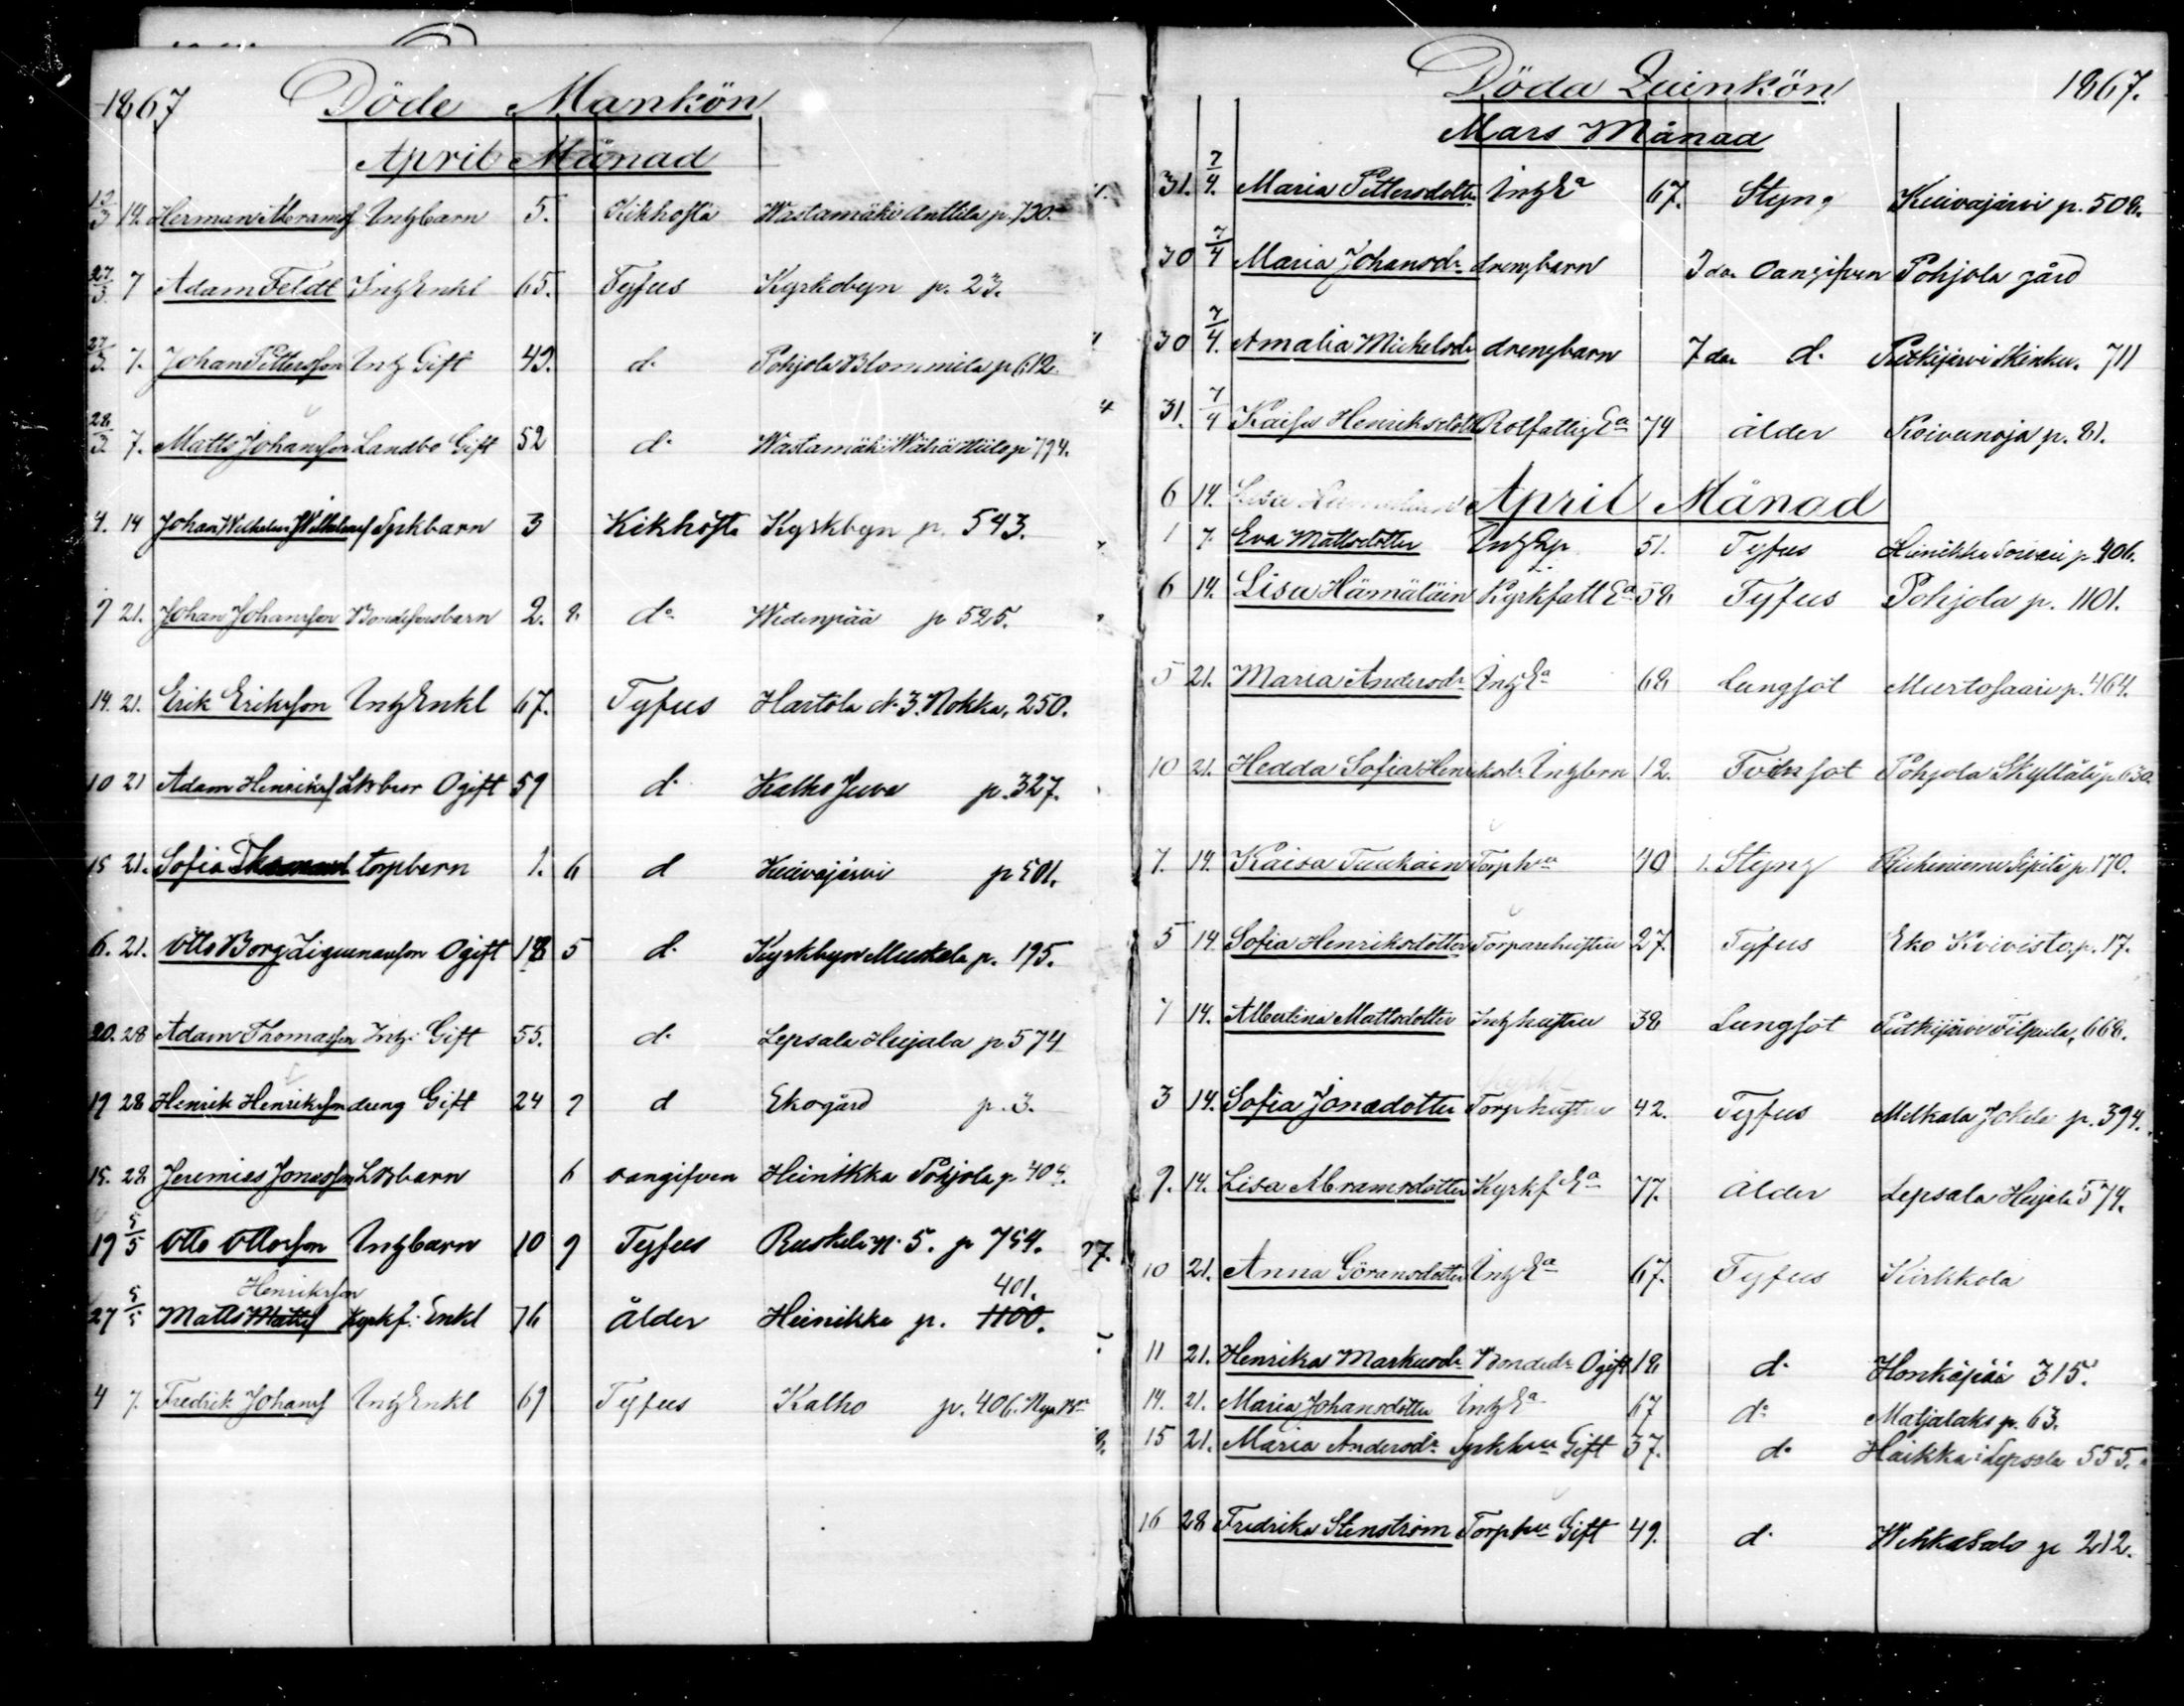 1867 Döde Mankön
April Månad
13/3 14. Herman Abramsf Inhbarn 5. Kikhosta Wastamäki Anttila p. 730.
27/3 7 Adam Feldt Inh Enkl 65. Tyfus Kyrkobyn p. 23.
27/3 7. Johan Pettersson Inh Gift 49. d. Pohjola Blommila p 612.
28/3 7. Matts Johansson Landbo Gift 52 d. Wastamäki p 794.
4. 14 Johan Wilhelm Wilhelmsf barn 3 Kikhosta Kyrkbyn p. 543.
9 21. Johan Johansson Bondesonsbarn 2. 8. do Widenpää p 525.
14. 21. Erik Eriksson Inh Enkl 67. Tyfus Hartola N. 3. Nokka, 250.
10 21 Adam Henriksf Ldbror Ogift 59 d. Kalho Juva p. 327.
15 21. Sofia torpbarn 1. 6 d Kuivajärvi p 501.
6. 21. Otto Borg Ogift 18 5 d. Kyrkbyn Muskela p. 195.
20. 28 Adam Thomasson Inh: Gift 55. d. Lepsala Heijala p. 574
19 28 Henrik Henriksson dreng Gift 24 9 d Ekogård p. 3.
15. 28 Jeremias Jonasson Ldbarn 6 oangifven Heinikka Pohjola p. 404.
19 5/5 Otto Ottosson Inhbarn 10 9 Tyfus Ruskeli N. 5. p 754.
Henriksson 401.
27 5/5 Matts Mattsf Kyrkf: Enkl 76 Ålder Heinikka p. 1100.
4 7. Fredrik Johansf Inh Enkl 69 Tyfus Kalho p. 406. Nya Bn
Döda Quinkön 1867.
Mars Månad
31. 7/4. Maria Pettersdotter Inh Ea 67. Styng Kuivajärvi p. 508.
30 7/4 Maria Johansdr drengbarn 3 da Oangifven Pohjola gård
30 7/4. Amalia Mickelsdr drengbarn 7 da d. Putkijärvi Skinku. 711
31. 7/4 Kaisa Henriksdotter Rotfattig Ea 74 ålder Koivunoja p. 81.
6 14. Lisa April Månad
1 7. Eva Mattsdotter Inh 51. Tyfus Heinikka p. 406.
6 14. Lisa Hämäläin Kyrkfatt Ea 58 Tyfus Pohjola p. 1101.
5 21. Maria Andersdr Inh Ea 68 Lungsot Murtosaari p. 464.
10 21. Hedda Sofia Henriksdr Inhbrn 12. Tvinsot Pohjola Skyttälä p 630.
7. 14. Kaisa Tuukain Torphu 40 1. Styng Seppilä p. 170.
5 14 Sofia Henriksdotter Torparehustru 27. Tyfus Eko Koivisto, p. 17.
7 14. Albertina Mattsdotter Inhhustru 38 Lungsot Putkijärvi 668.
3 14. Sofia Jonasdotter Torphustru 42. Tyfus Melkala Jokela p. 394.
9. 14. Lisa Abramsdotter Kyrkf Ea 77. Ålder Lepsala Heijala 574.
10 21. Anna Göransdotter Inh Ea 67. Tyfus Kirkkola
11 21. Henrika Markusdr Bondedr Ogift 18 d. Honkäpää 315.
14. 21. Maria Johansdotter Inh Ea 67 do Matjalaks p. 63.
15 21. Maria Andersdr Gift 37. do Haikka i Lepsala 555.
16 28 Fredrika Stenström Torphu Gift 49. d. Wehkasalo p 212.